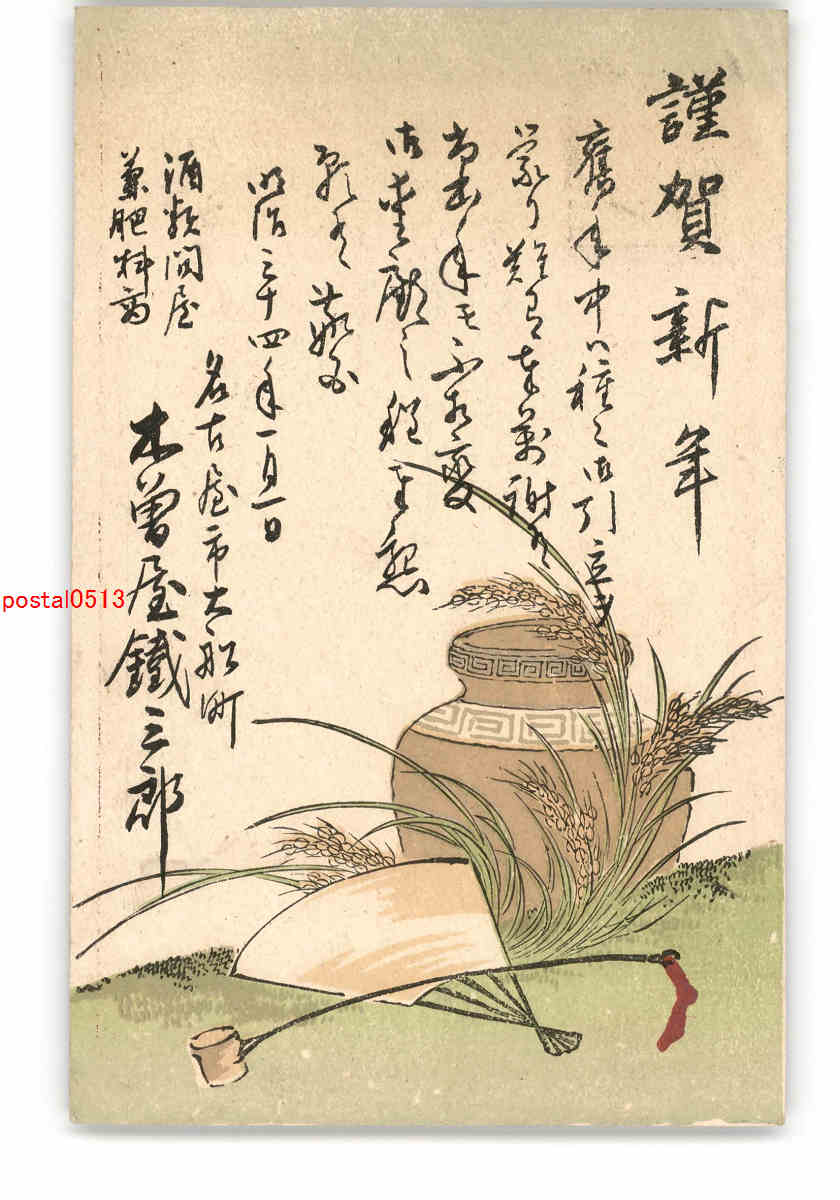 謹賀新年
舊年中ハ種々御引立ヲ
蒙リ難有奉萬謝候
尚本年モ不相變
御愛顧之程奉懇
願候 敬具
明治三十四年一月一日
名古屋市大船町
酒類問屋
兼肥料商
木曽屋鐵三郎
postal0513